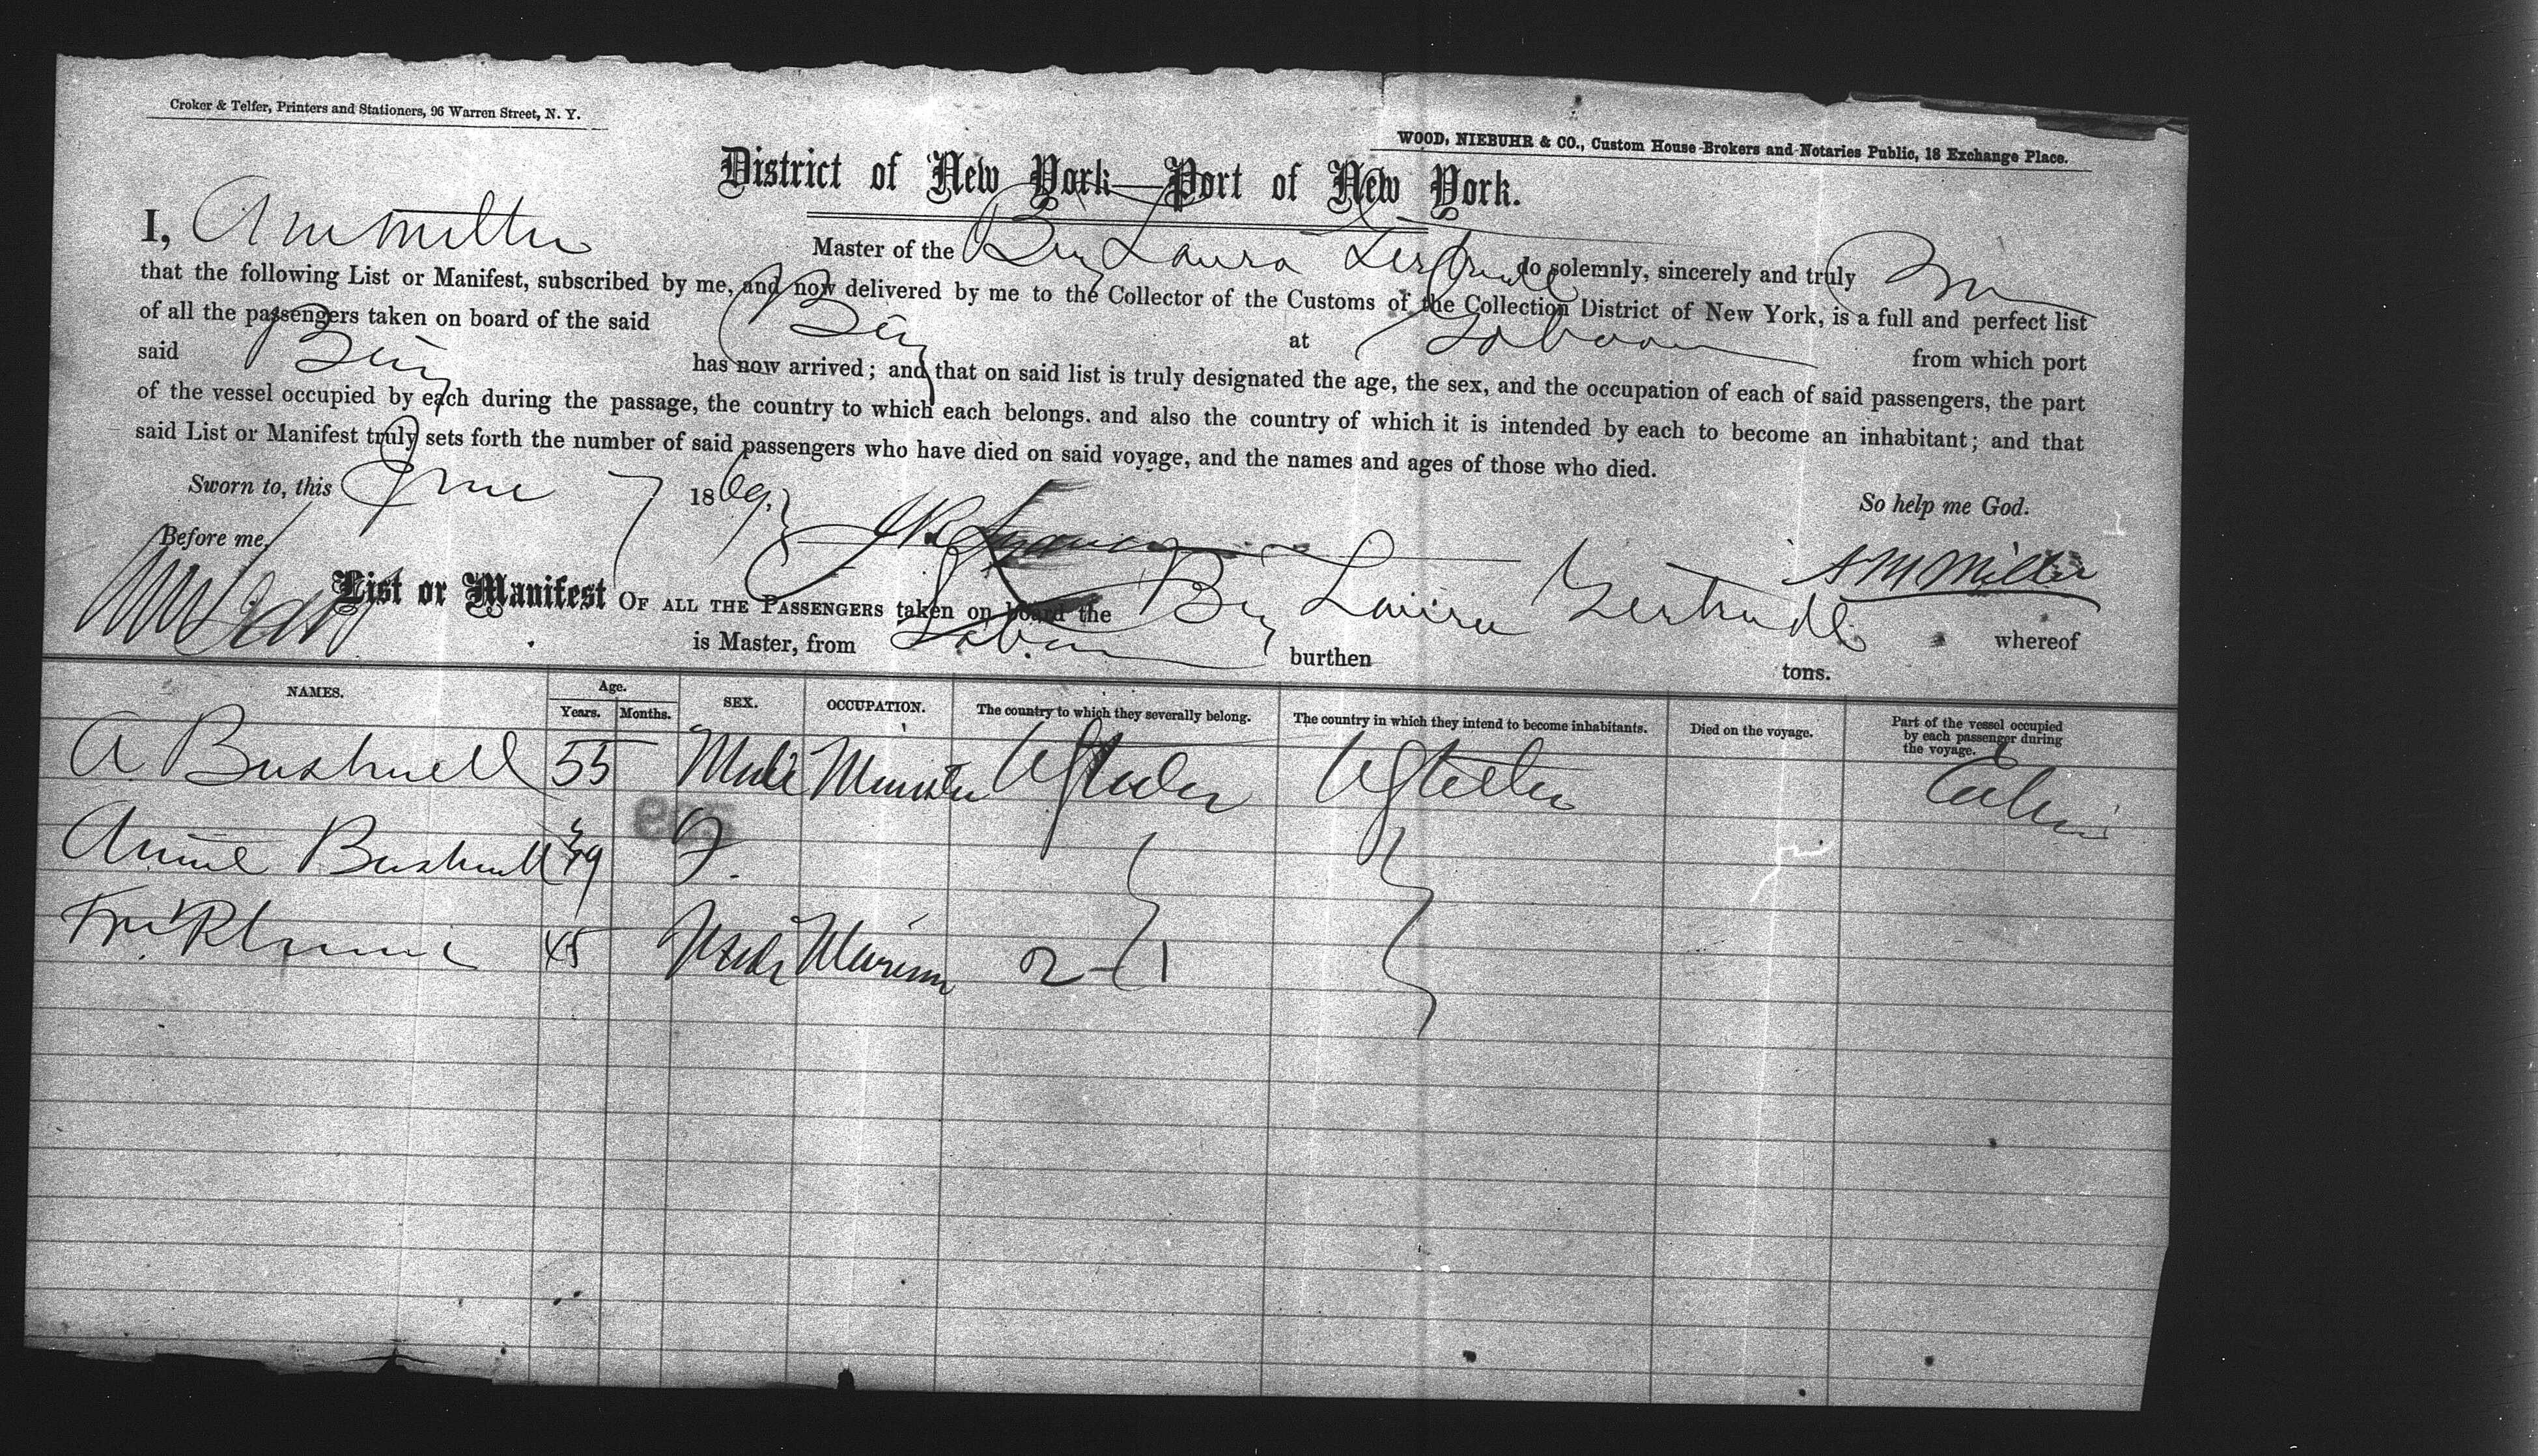 Croker & Telfer, Printers and Stationers, 96 Warren Street, N. Y.
WOOD, NIEBUHR & CO., Custom House Brokers and Notaries Public, 18 Exchange Place.
District of New York—Port of New York.
I, A M Miller Master of the Brig Laura Gertrude do solemnly, sincerely and truly
that the following List or Manifest, subscribed by me, and now delivered by me to the Collector of the Customs of the Collection District of New York, is a full and perfect list
of all the passengers taken on board of the said Brig at Gaboon from which port
said Brig has now arrived; and that on said list is truly designated the age, the sex, and the occupation of each of said passengers, the part
of the vessel occupied by each during the passage, the country to which each belongs. and also the country of which it is intended by each to become an inhabitant; and that
said List or Manifest truly sets forth the number of said passengers who have died on said voyage, and the names and ages of those who died.
Sworn to, this June 7 1869,
So help me God.
Before me,
A M Miller
List or Manifest OF ALL THE PASSENGERS taken on board the Brig Laura Gertrude whereof
is Master, from Gaboon burthen tons.
NAMES. Age. Years. Months. SEX. OCCUPATION. The country to which they severally belong. The country in which they intend to become inhabitants. Died on the voyage. Part of the vessel occupied by each passenger during the voyage.
A. Bushnell 55 Male Minister U States U States Cabin
Annie Bushnell 39 F.
45 Male Mariner 2 - 1